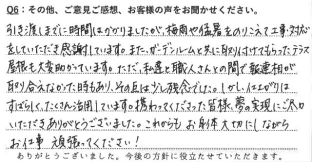 Q6：その他、ご意見ご感想、お客様の声をお聞かせください。
引き渡しまでに時間はかかりましたが、梅雨や猛暑ものりこえて工事・対応
をしていただき感謝しています。また、ガーデンルームと共に取り付けてもらったテラス
屋根も大変助かっています。ただ、私達と職人さんとの間で報連相が
取り合えなかった時もあり、その点は少し残念でした。しかし、仕上がりは
すばらしく、たくさん活用しています。携わってくださった皆様、夢の実現にご尽力
いただきありがとうございました。これからもお身体大切にしながら
お仕事頑張ってください！
ありがとうございました。今後の方針に役立たせていただきます。